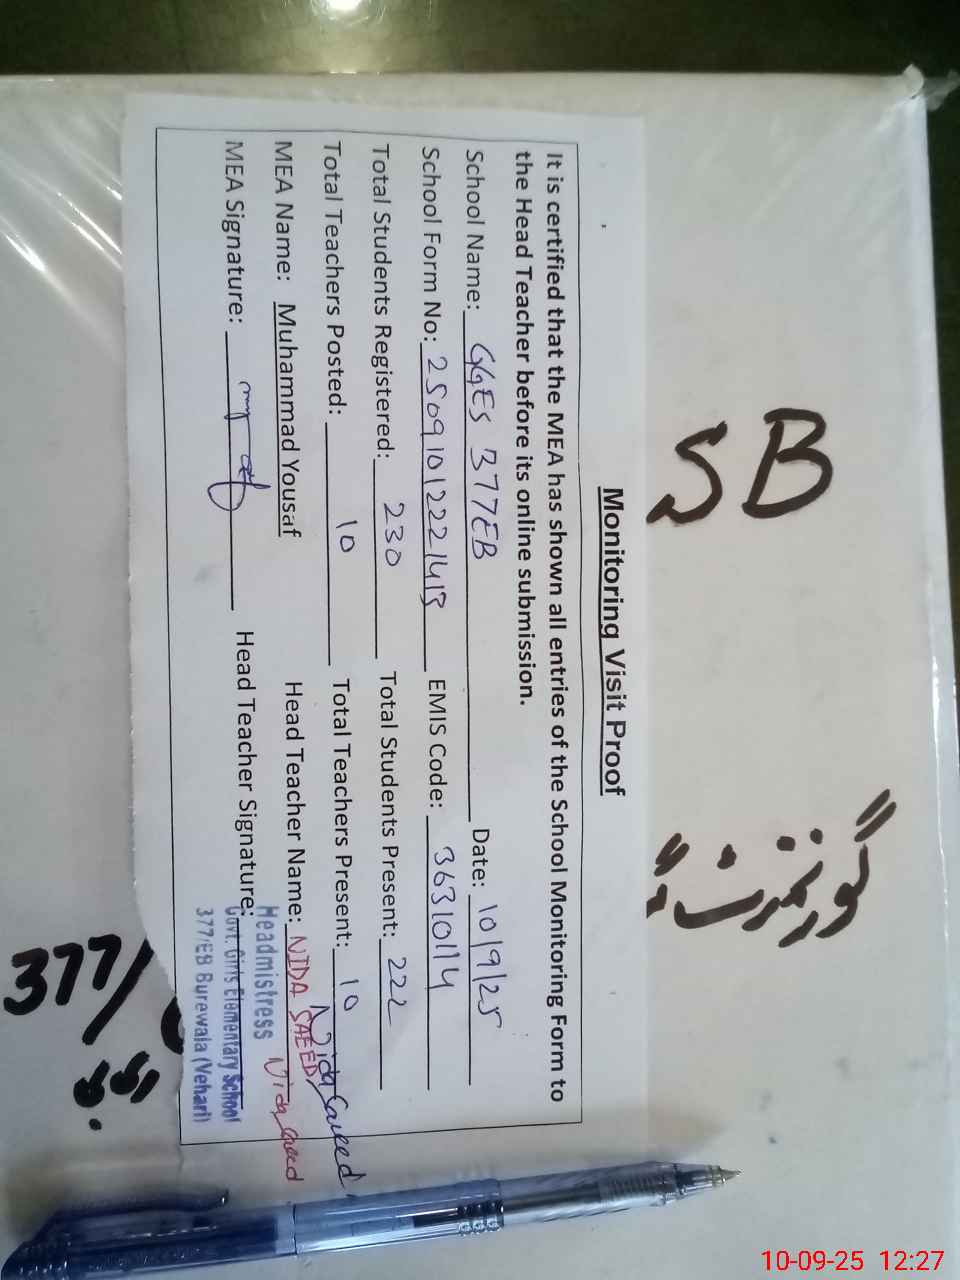 SB
گورنمنٹ
Monitoring Visit Proof
It is certified that the MEA has shown all entries of the School Monitoring Form to
the Head Teacher before its online submission.
School Name: GGES 377EB Date: 10/9/25
School Form No: 25091012221413 EMIS Code: 36310114
Total Students Registered: 230 Total Students Present: 222
Total Teachers Posted: 10 Total Teachers Present: 10
Nida Saeed
MEA Name: Muhammad Yousaf Head Teacher Name: NIDA SAEED
Nida Saeed
MEA Signature: Head Teacher Signature:
Headmistress
Govt. Girls Elementary School
377/EB Burewala (Vehari)
377/
10-09-25 12:27